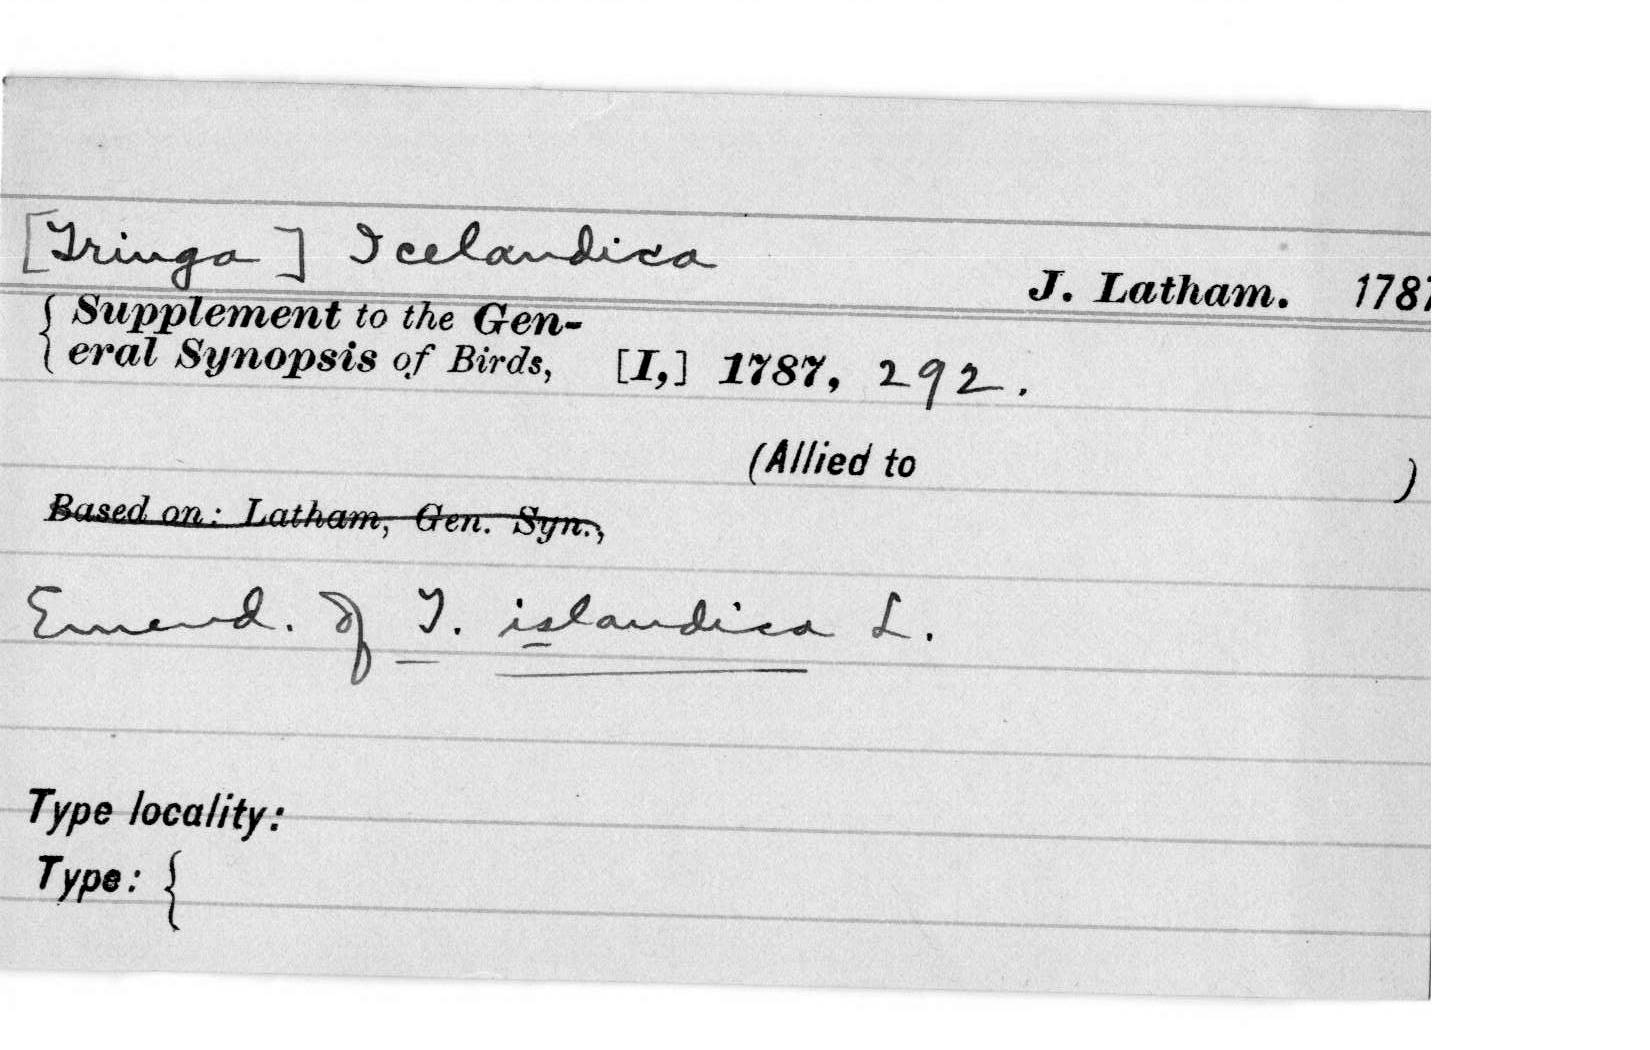 [Tringa] Icelandica
J. Latham. 1787
{ Supplement to the Gen-
eral Synopsis of Birds, [I,] 1787, 292.
(Allied to )
Based on: Latham, Gen. Syn.,
Emend. of T. islandica L.
Type locality:
Type: {